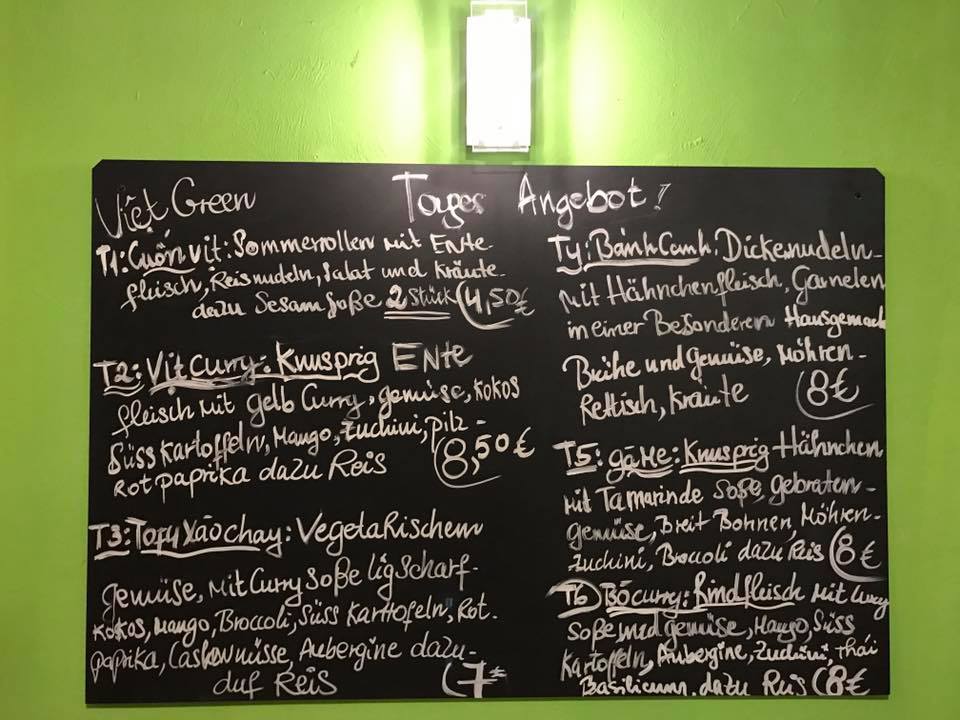 Viet Green
Tages Angebot!
T1: Cuốn vịt: Sommerrollen mit Ente-
fleisch, Reisnudeln, Salat und Kräute-
dazu Sesam Soße 2 Stück 4,50€
T2: Vịt Curry: Knusprig Ente
fleisch mit gelb Curry, gemüse, Kokos
Süss Kartoffeln, Mango, Zuchini, pilz-
Rot paprika dazu Reis 8,50€
T3: Tofu Xào chay: Vegetarischem
gemüse, mit Curry Soße ligscharf-
Kokos, Mango, Broccoli, Süss Kartoffeln, Rot.
paprika, Cashewnüsse, Aubergine dazu-
duf Reis 7€
Ty: Bánh Canh: Dickenudeln-
mit Hähnchenfleisch, Garnelen
in einer Besonderen Hausgemach
Brühe und gemüse, Möhren-
Rettisch, Kräute 8€
T5: gà Me: Knusprig Hähnchen
mit Tamarinde Soße, gebraten-
gemüse, Breit Bohnen, Möhren-
Zuchini, Broccoli dazu Reis 8€
T6 Bò curry: Rindfleisch mit Curry
Soße und gemüse, Mango, Süss
Kartoffeln, Aubergine, Zuchini, Thai
Basilicum, dazu Reis 8€